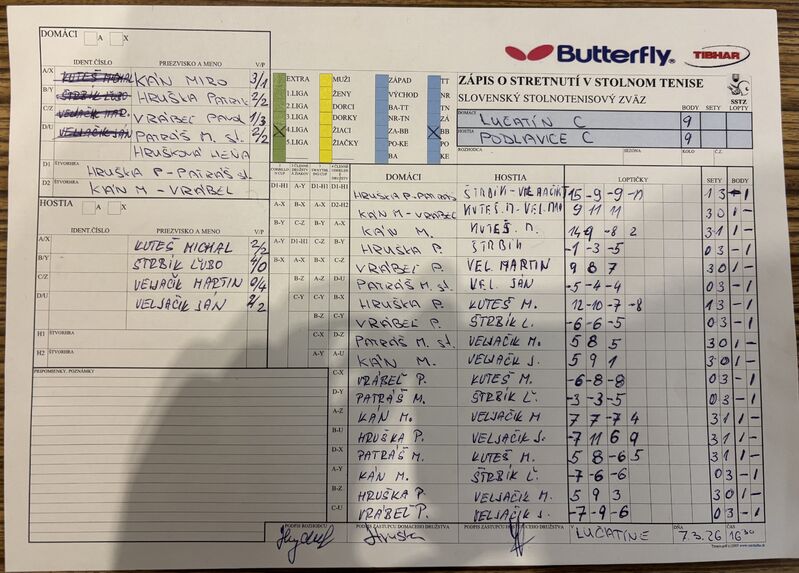 DOMÁCI A X
IDENT.ČÍSLO PRIEZVISKO A MENO V/P
A/X KUTEŠ MICHAL KÁN MIRO 3/1
B/Y ŠTRBÍK ĽUBO HRUŠKA PATRIK 2/2
C/Z VELJAČIK MAR. VRÁBEĽ PAVOL 1/3
D/U VELJAČIK JÁN PATRÁŠ M. st. 2/2
HRUŠKOVÁ
D1 ŠTVORHRA HRUŠKA P-PATRÁŠ st.
D2 ŠTVORHRA KÁN M - VRÁBEL
HOSTIA A X
IDENT.ČÍSLO PRIEZVISKO A MENO V/P
A/X KUTEŠ MICHAL 2/2
B/Y ŠTRBÍK ĽUBO 4/0
C/Z VELJAČIK MARTIN 0/4
D/U VELJAČIK JÁN 2/2
H1 ŠTVORHRA
H2 ŠTVORHRA
PRIPOMIENKY, POZNÁMKY
EXTRA MUŽI ZÁPAD TT
1.LIGA ŽENY VÝCHOD NR
2.LIGA DORCI BA-TT TN
3.LIGA DORKY NR-TN ZA
4.LIGA ŽIACI ZA-BB BB
5.LIGA ŽIAČKY PO-KE PO
BA KE
Butterfly
TIBHAR
ZÁPIS O STRETNUTÍ V STOLNOM TENISE
SLOVENSKÝ STOLNOTENISOVÝ ZVÄZ
SSTZ
BODY SETY LOPTY
DOMÁCI LUČATÍN C 9
HOSTIA PODLAVICE C 9
ROZHODCA SEZÓNA KOLO Č.Z.
DOMÁCI HOSTIA LOPTIČKY SETY BODY
D1-H1 A-Y D1-H1 D1-H1 D1-H1 HRUŠKA P-PATRÁŠ ŠTRBÍK-VELJAČIK J 15 -9 -9 -11 1 3 - 1
A-X B-X A-X D2-H2 KÁN M-VRÁBEĽ KUTEŠ M-VEL.MA 9 11 11 3 0 1 -
B-Y C-Z B-Y A-X KÁN M. KUTEŠ M. 14 9 -8 2 3 1 1 -
A-Y D1-H1 C-Z B-Y HRUŠKA P. ŠTRBÍK -1 -3 -5 0 3 - 1
B-X A-X A-Y C-Z VRÁBEĽ P. VEL. MARTIN 9 8 7 3 0 1 -
B-Z A-Z D-U PATRÁŠ M. st. VEL. JÁN -5 -4 -4 0 3 - 1
C-Y C-Y B-X HRUŠKA P. KUTEŠ M. 12 -10 -7 -8 1 3 - 1
B-Z C-Y VRÁBEĽ P. ŠTRBÍK Ľ. -6 -6 -5 0 3 - 1
C-X D-Z PATRÁŠ M. st. VELJAČIK M. 5 8 5 3 0 1 -
A-Y A-U KÁN M. VELJAČIK J. 5 9 1 3 0 1 -
C-X VRÁBEĽ P. KUTEŠ M. -6 -8 -8 0 3 - 1
D-Y PATRÁŠ M. ŠTRBÍK Ľ. -3 -3 -5 0 3 - 1
A-Z KÁN M. VELJAČIK M 7 7 -7 4 3 1 1 -
B-U HRUŠKA P. VELJAČIK J. -7 11 6 9 3 1 1 -
D-X PATRÁŠ M. KUTEŠ M. 5 8 -6 5 3 1 1 -
A-Y KÁN M. ŠTRBÍK Ľ. -7 -6 -6 0 3 - 1
B-Z HRUŠKA P. VELJAČIK M. 5 9 3 3 0 1 -
C-U VRÁBEĽ P. VELJAČIK J. -7 -9 -6 0 3 - 1
PODPIS ROZHODCU PODPIS ZÁSTUPCU DOMÁCEHO DRUŽSTVA PODPIS ZÁSTUPCU HOSŤUJÚCEHO DRUŽSTVA V LUČATÍNE DŇA 7.3.26 ČAS 16 30
Hruška